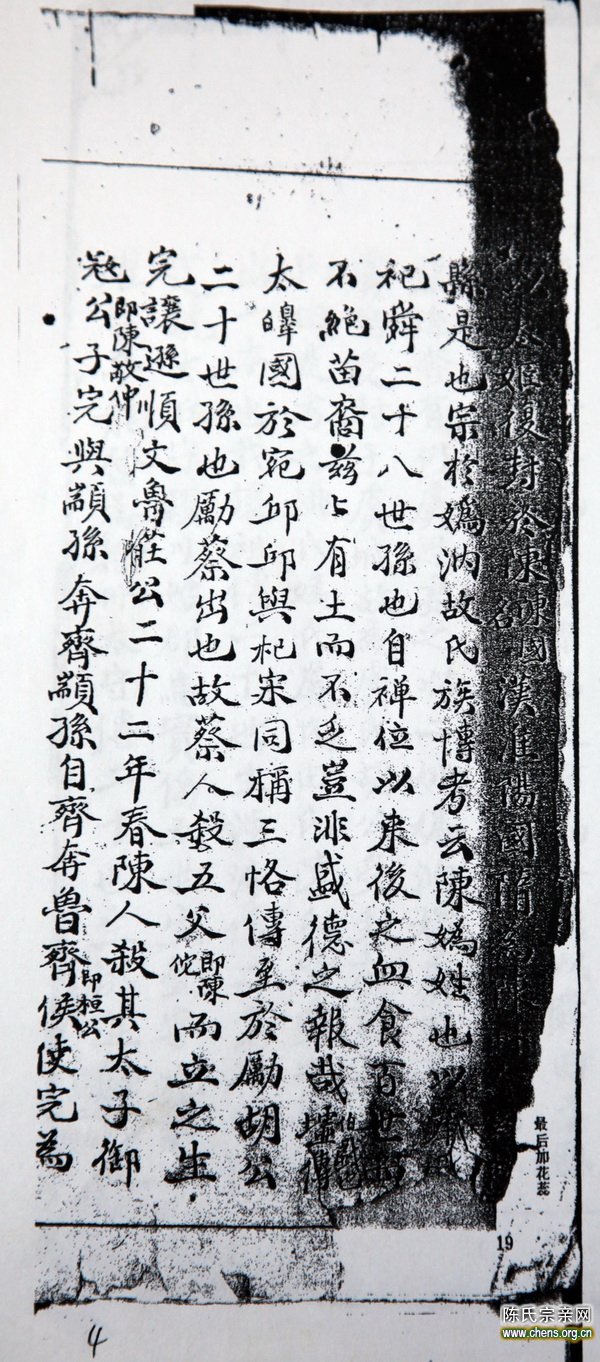 大姬復封於陳陳國名漢淮陽國隋為陳
縣是也宗於嬀汭故氏族博考云陳嬀姓也以
祀舜二十八世孫也自禅位以来後之血食百世而
不絶苗裔兹々有土而不乏豈非盛德之報哉墟傳
太皥國於宛邱邱與杞宋同稱三恪傳至於厲胡公
二十世孫也厲蔡出也故蔡人殺五父即陳佗而立之生
完讓遜順文魯莊公二十二年春陳人殺其太子御
冦公子完即陳敬仲與顓孫奔齊顓孫自齊奔魯齊侯即桓公使完為
最后加花蕊
19
4
陈氏宗亲网
www.chens.org.cn